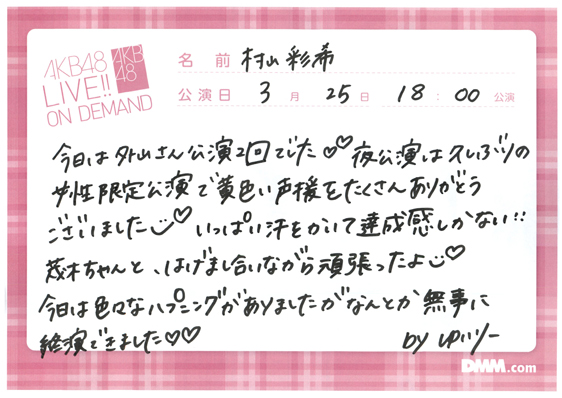 AKB48
LIVE!!
ON DEMAND
AKB
48
名前 村山彩希
公演日 3月 25日 18:00 公演
今日は外山さん公演2回でした♡♡ 夜公演は久しぶりの
女性限定公演で黄色い声援をたくさんありがとう
ございました♡ いっぱい汗をかいて達成感しかない!!
茂木ちゃんと、はげまし合いながら頑張ったよ♡
今日は色々なハプニングがありましたがなんとか無事に
終演できました♡♡ by ゆいりー
DMM.com